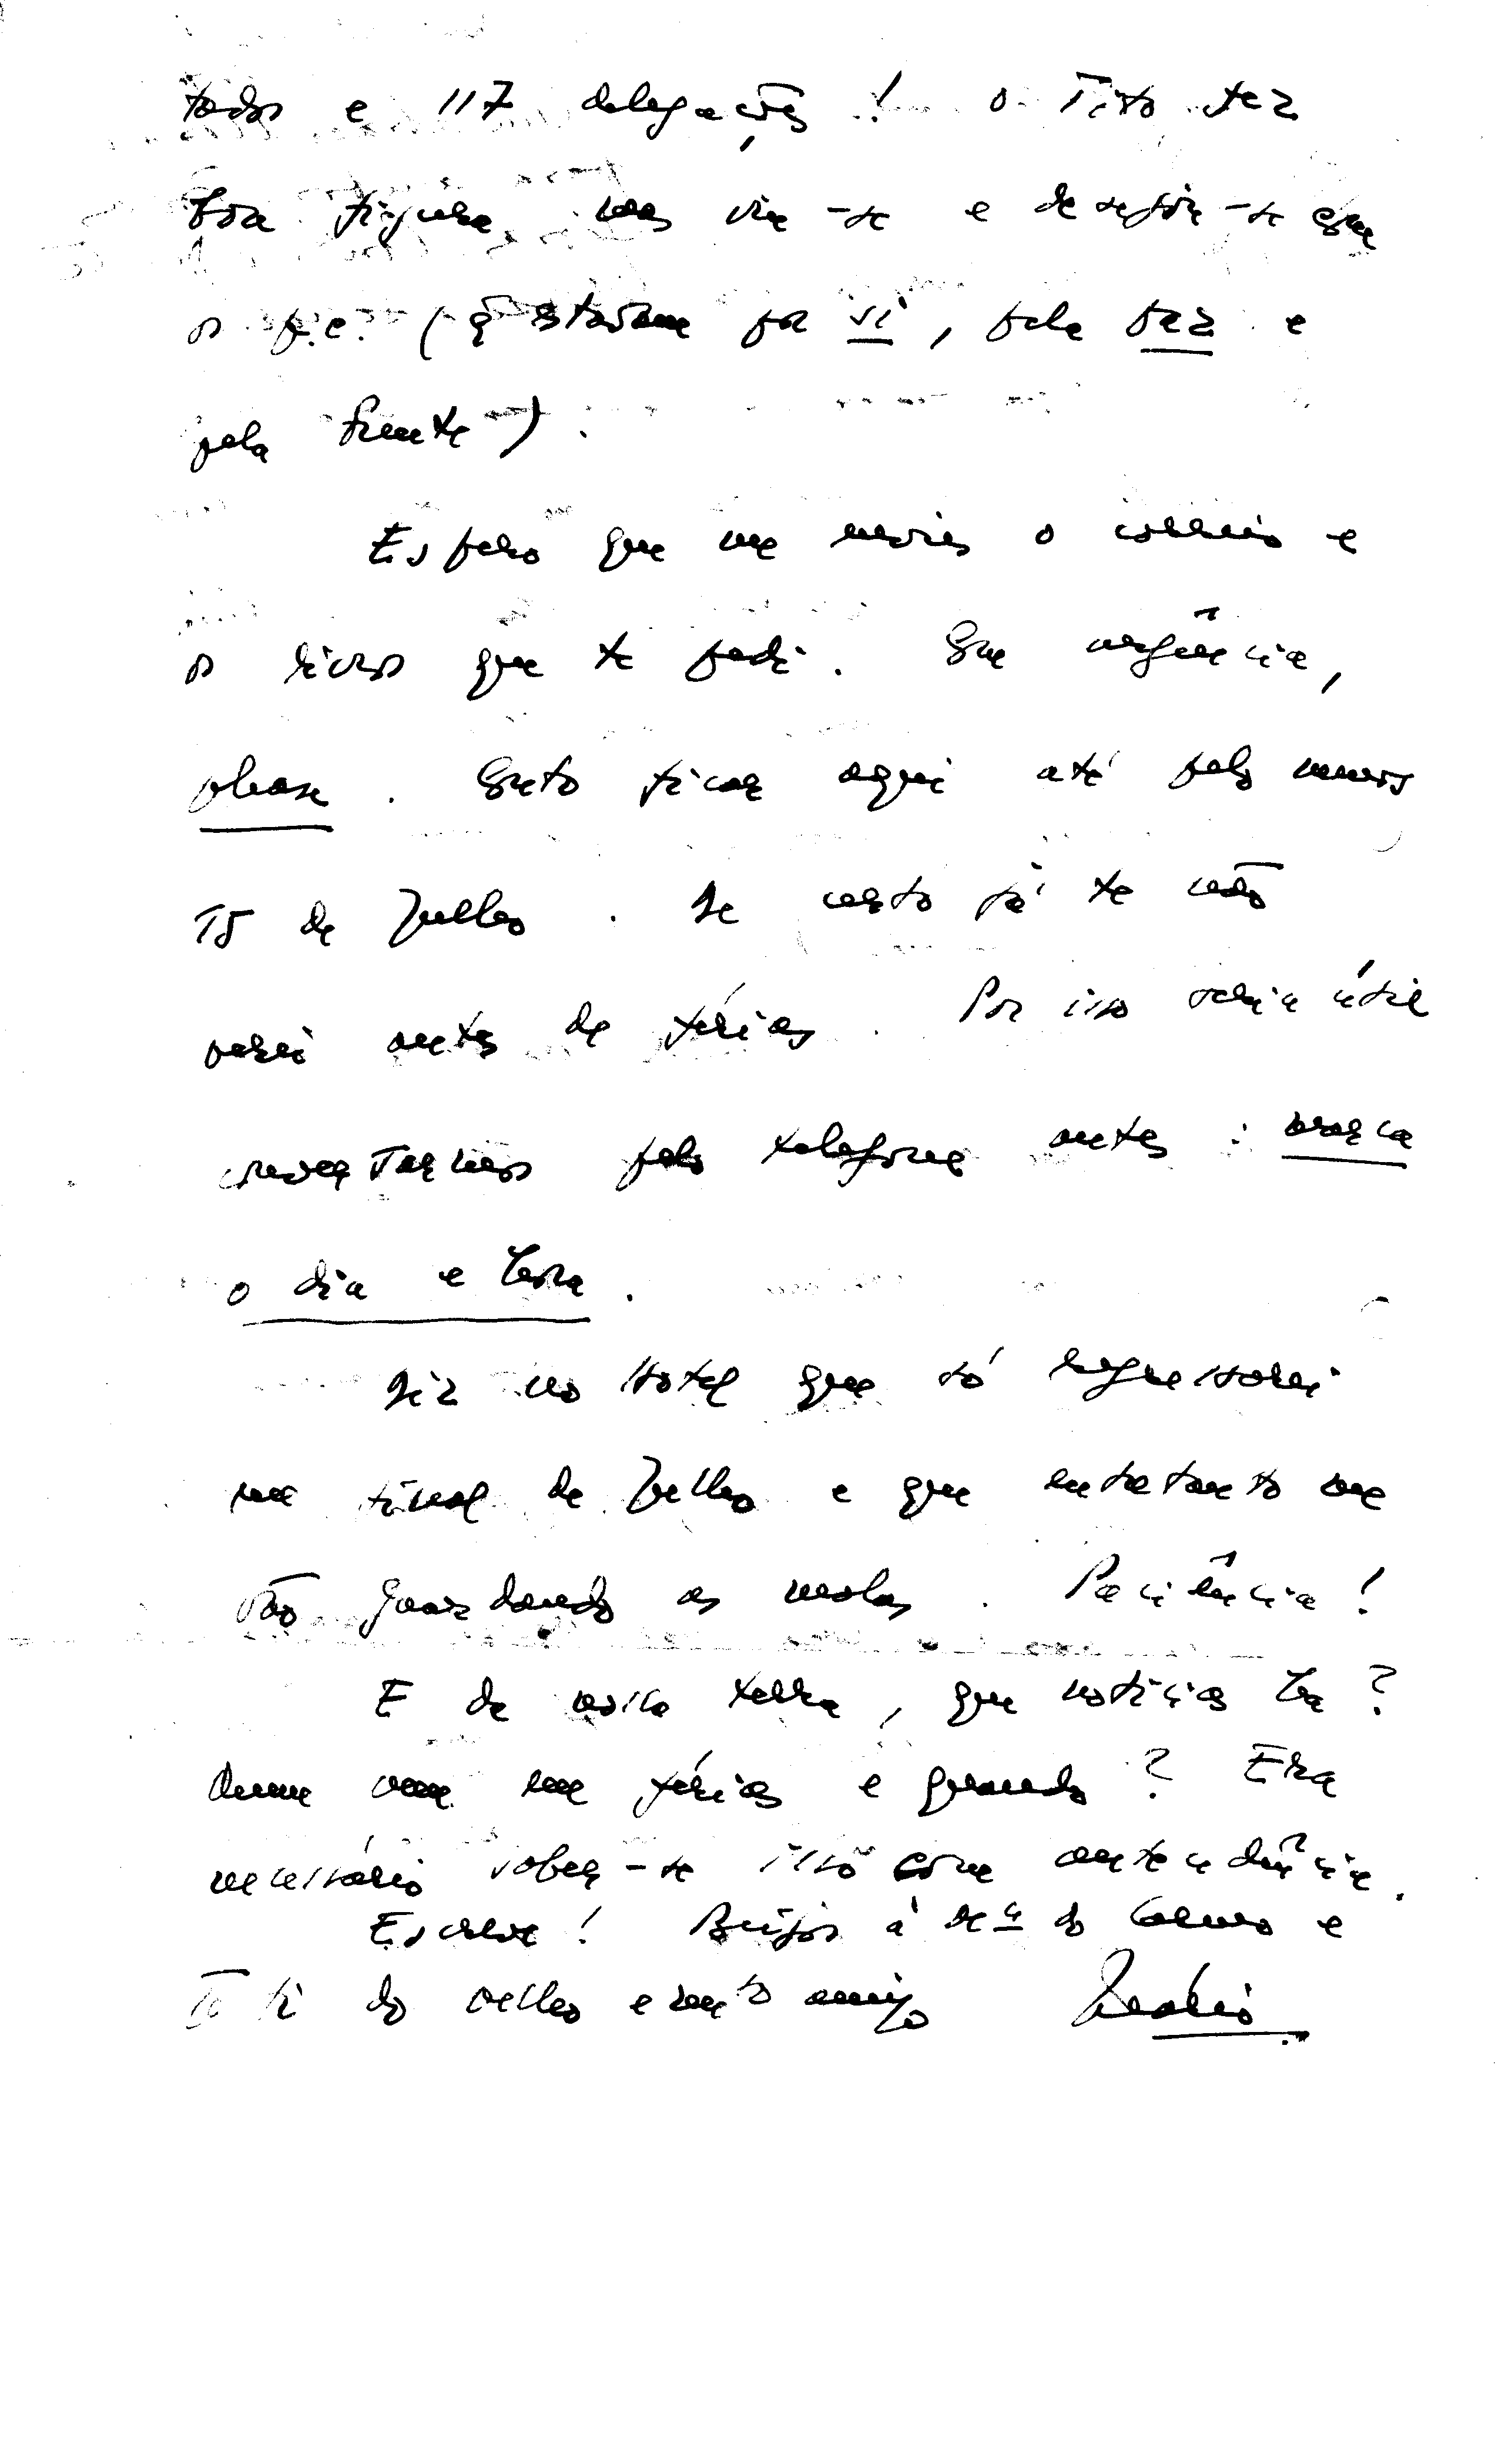 todos e 117 delegações! O Tito fez
boa figura, mas viu-se e desejou-se com
os p.c. (q̃ estavam por si, pela paz e
pela frente).
Espero que me envies o correio e
os livros que te pedi. Com urgência,
please. Conto ficar aqui até pelo menos
15 de Julho. De certo já te não
verei antes de férias. Por isso seria útil
conversarmos pelo telefone antes: marca
o dia e hora.
Diz no Hotel que só regressarei
no final de Julho e que entretanto me
vão guardando as malas. Paciência!
E da nossa terra, que notícias há?
vem em férias e quando? Era
necessário saber-se isso com antecedência.
Escreve! Beijos à Mª do Carmo e
a ti do velho e mto amigo